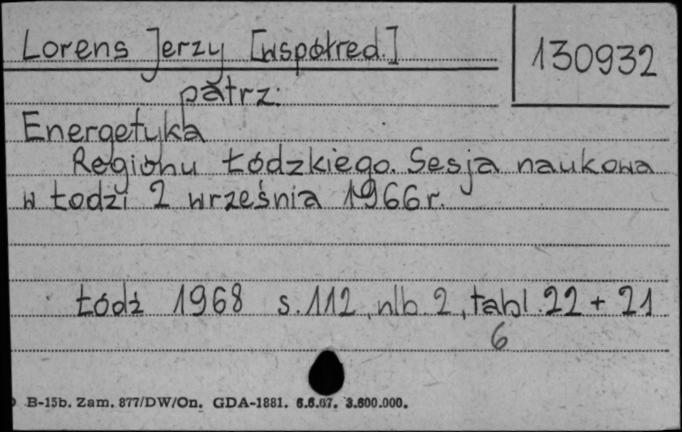 Lorens Jerzy [współred.]
130932
patrz:
Energetyka
Regionu Łódzkiego. Sesja naukowa
w Łodzi 2 września 1966 r.
Łódź 1968 s. 112, nlb. 2, tabl. 22 + 21
6
B-15b. Zam. 877/DW/On. GDA-1881. 6.6.67. 3.600.000.